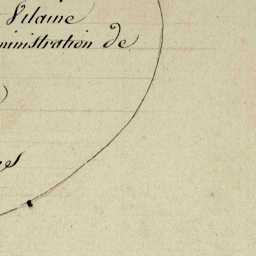 Vilaine
ministration de
es